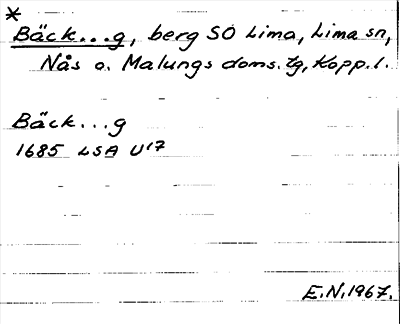 *
Bäck...g, berg SO Lima, Lima sn,
Nås o. Malungs doms. tg, Kopp. l.
Bäck...g
1685 LSA U17
E.N. 1967.